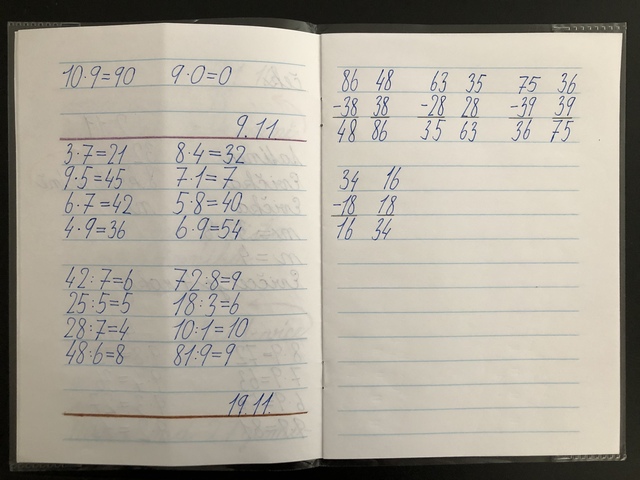 10·9=90 9·0=0
9.11
3·7=21 8·4=32
9·5=45 7·1=7
6·7=42 5·8=40
4·9=36 6·9=54
42:7=6 72:8=9
25:5=5 18:3=6
28:7=4 10:1=10
48:6=8 81:9=9
19.11.
86 48 63 35 75 36
-38 38 -28 28 -39 39
48 86 35 63 36 75
34 16
-18 18
16 34